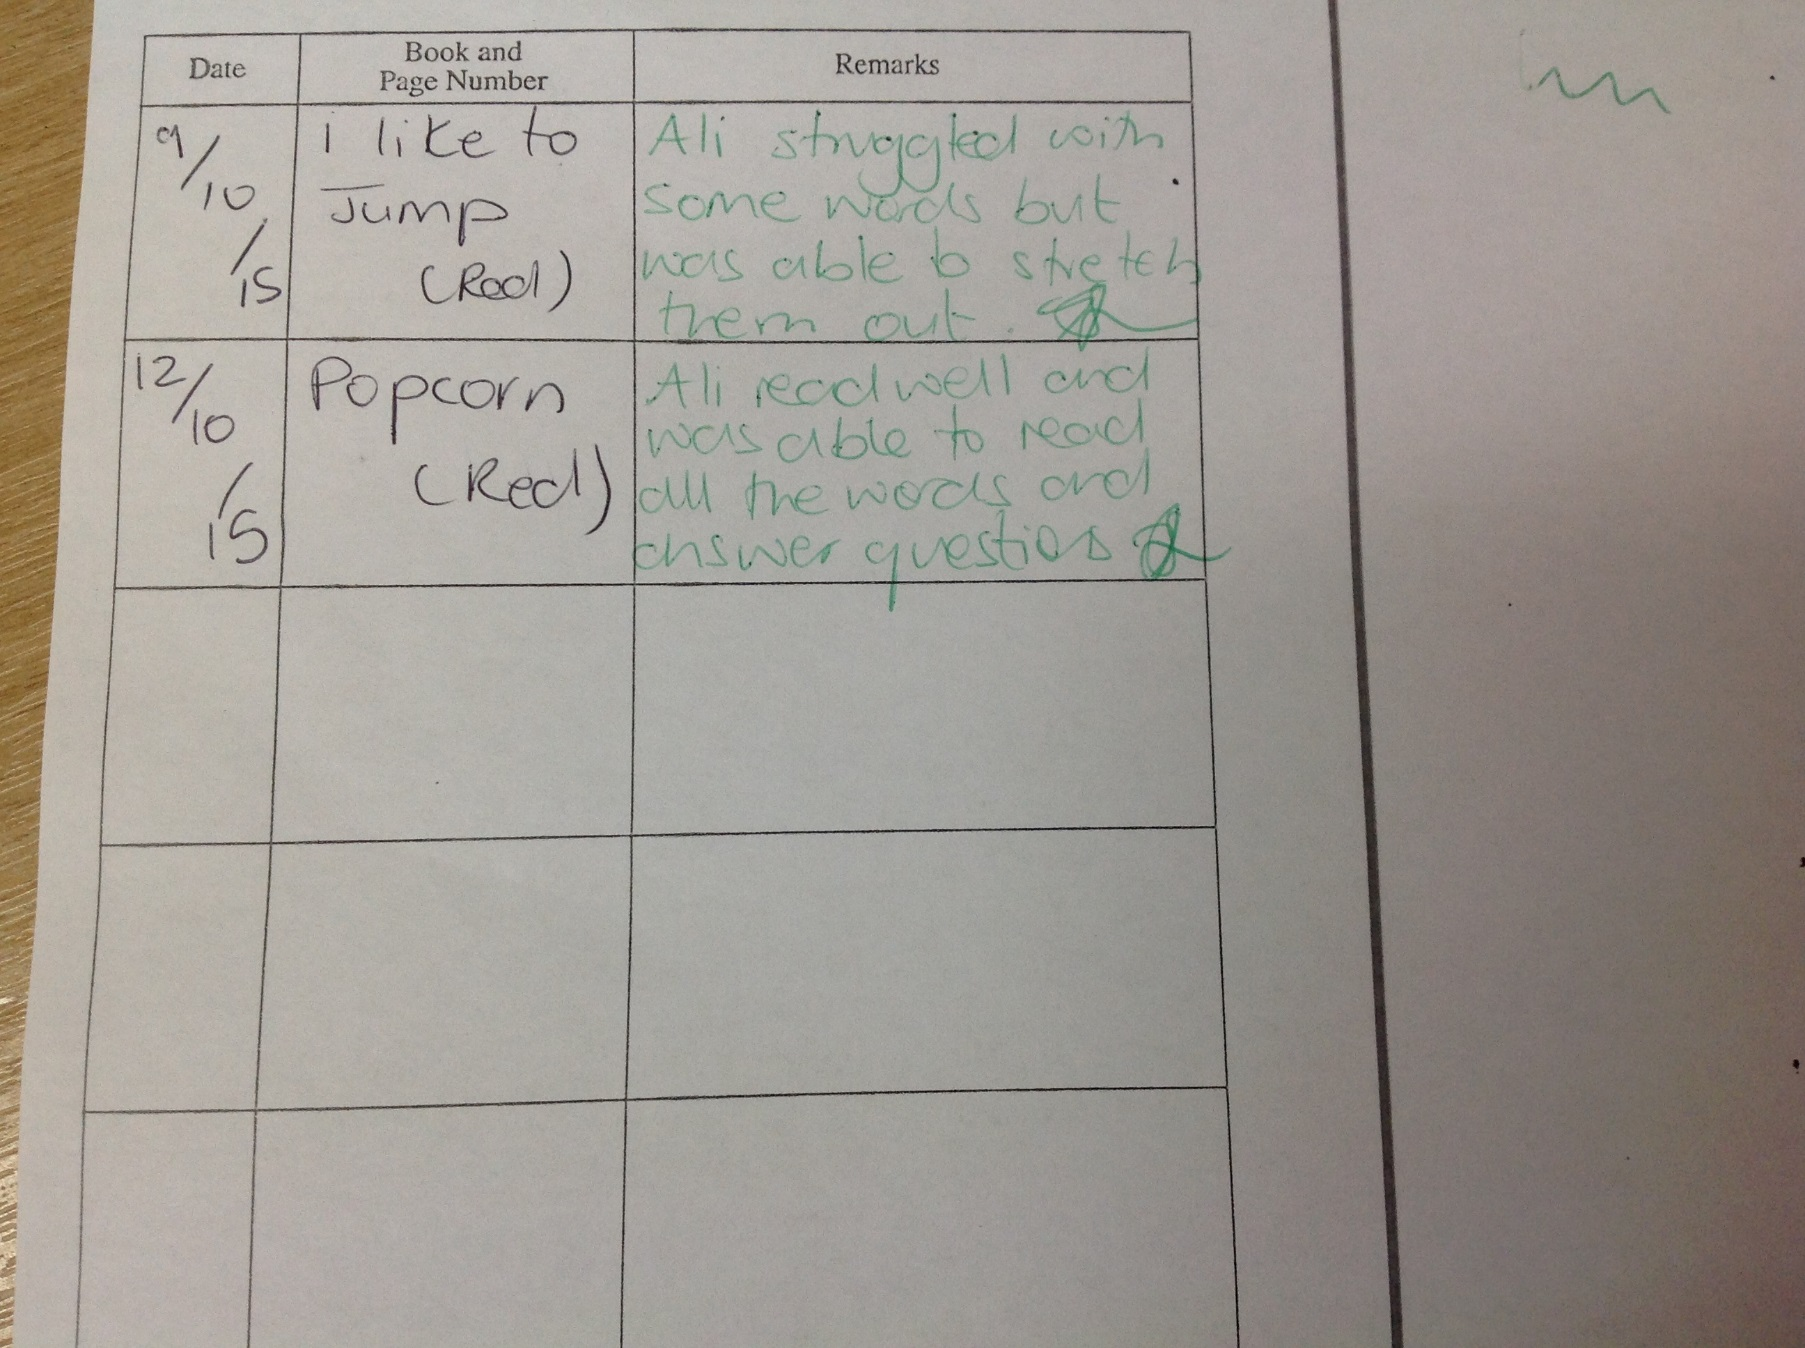 Date
Book and
Page Number
Remarks
9/10/15
I like to
Jump
(Red)
Ali struggled with
some words but
was able to stretch
them out.
12/10/15
Popcorn
(Red)
Ali read well and
was able to read
all the words and
answer questions